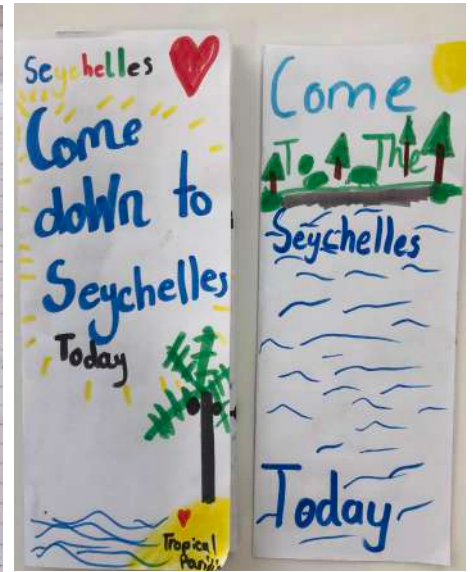 Seychelles
Come
doWn to
Seychelles
Today
Tropical
Come
To The
Seychelles
Today